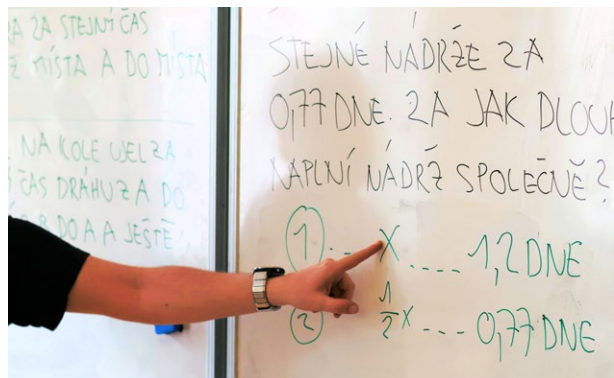 ZA STEJNÝ ČAS
Z MÍSTA A DO MÍSTA
NA KOLE UJEL ZA
ČAS DRÁHU Z A DO
B DO A A JEŠTĚ
STEJNÉ NÁDRŽE ZA
0,77 DNE. ZA JAK DLOUH
NAPLNÍ NÁDRŽ SPOLEČNĚ?
1 .... X .... 1,2 DNE
2 1/2 X --- 0,77 DNE